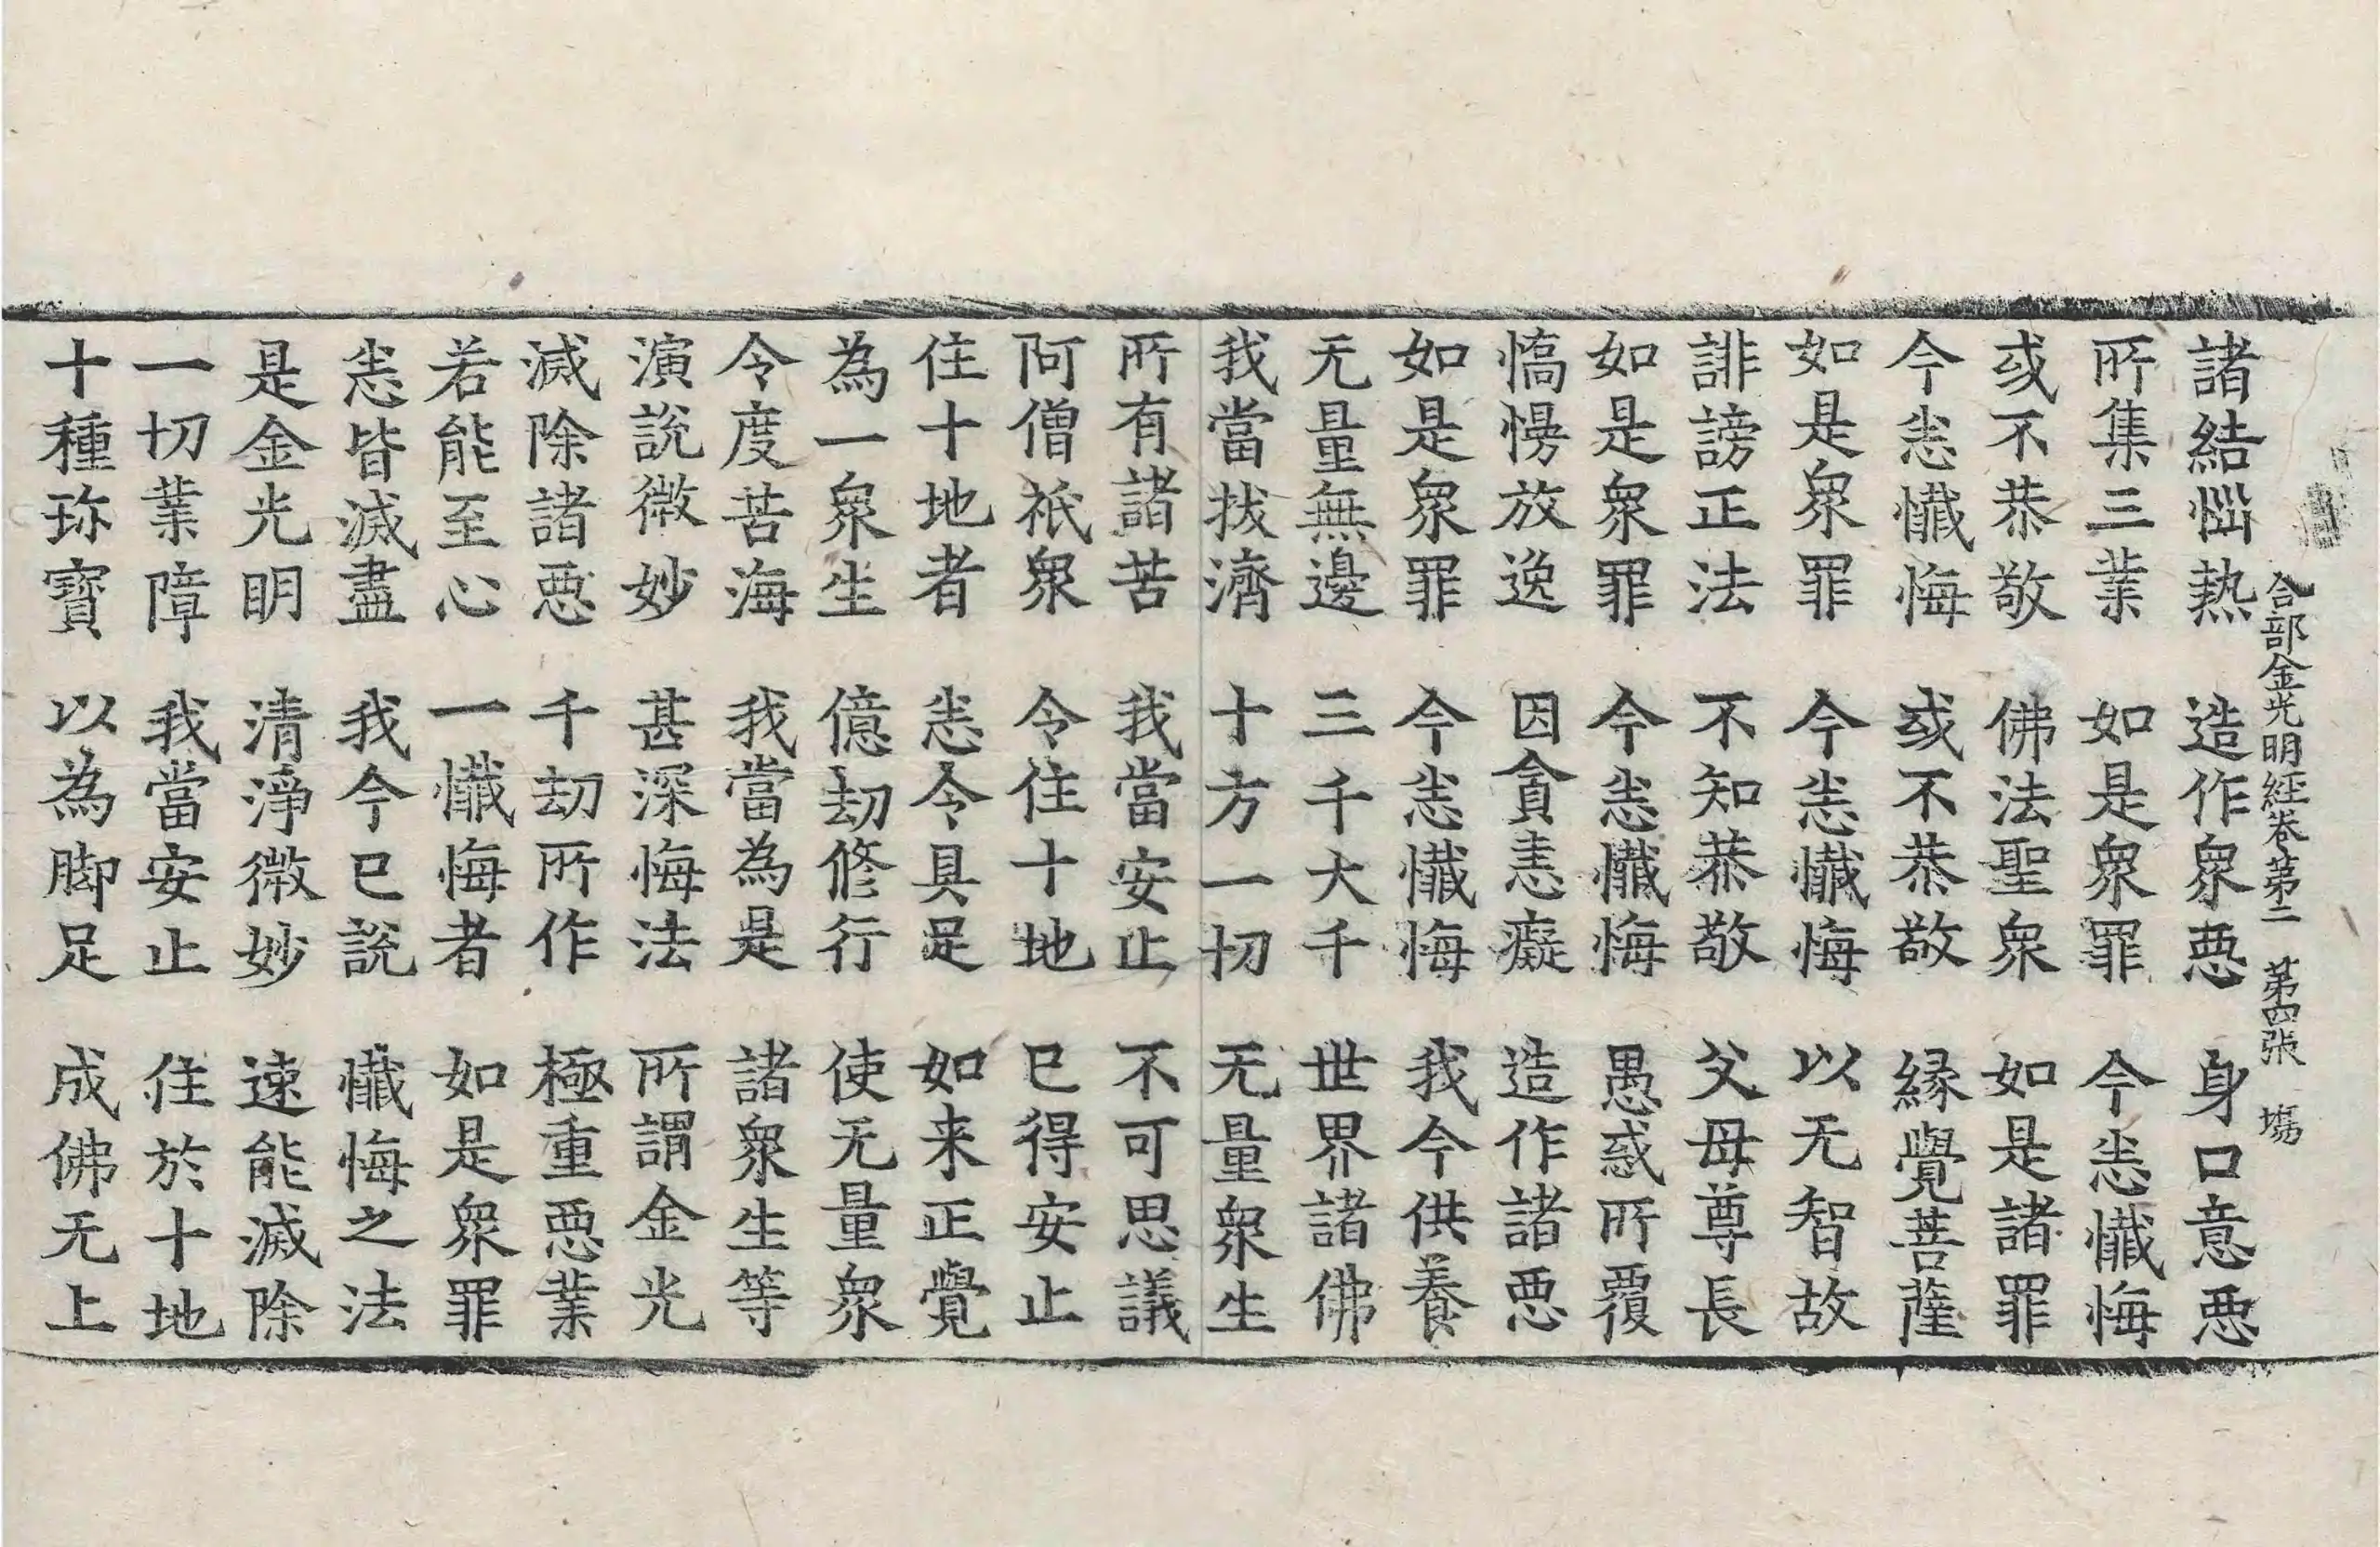 合部金光明經卷第二　第四張　塲
諸結惱熱　造作衆惡　身口意惡
所集三業　如是衆罪　今悉懴悔
或不恭敬　佛法聖衆　如是諸罪
今悉懴悔　或不恭敬　縁覺菩薩
如是衆罪　今悉懴悔　以无智故
誹謗正法　不知恭敬　父母尊長
如是衆罪　今悉懴悔　愚惑所覆
憍慢放逸　因貪恚癡　造作諸惡
如是衆罪　今悉懴悔　我今供養
无量無邊　三千大千　世界諸佛
我當拔濟　十方一切　无量衆生
所有諸苦　我當安止　不可思議
阿僧祇衆　令住十地　已得安止
住十地者　悉令具足　如来正覺
為一衆生　億劫修行　使无量衆
令度苦海　我當為是　諸衆生等
演說微妙　甚深悔法　所謂金光
滅除諸惡　千劫所作　極重惡業
若能至心　一懴悔者　如是衆罪
悉皆滅盡　我今已說　懴悔之法
是金光明　清淨微妙　速能滅除
一切業障　我當安止　住於十地
十種珎寶　以為脚足　成佛无上